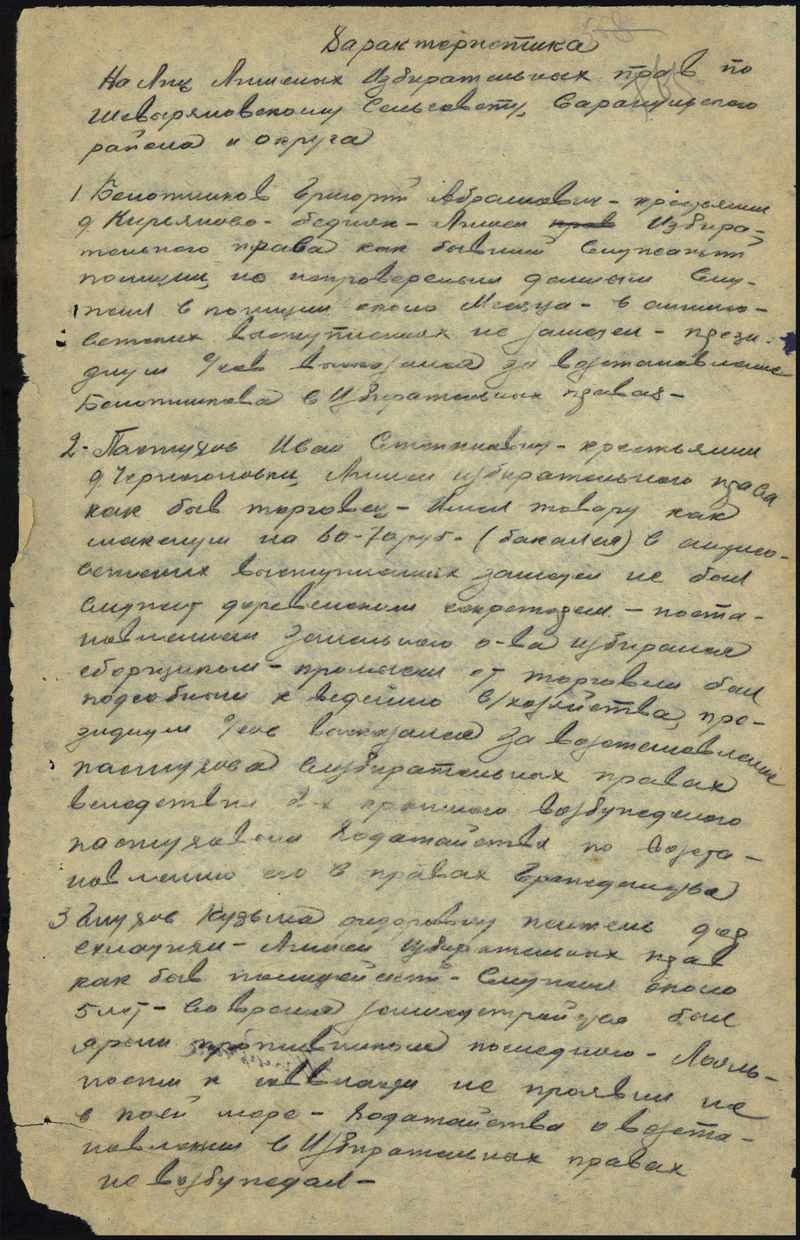 Характеристика
На Лиц Лишеных Избирательных прав по
Шевыряловскому Сельсовету, Сарапульского
района и округа
1 Болотников Григорий Абрамович - крестьянин
д Кирьяново - бедняк - Лишен прав Избира-
тельного права как бывший Служащий
полиции, по непровереным данным Слу-
жил в полиции около Месяца - в антисо-
ветских выступлениях не замечен - прези-
диум Рика высказался за востановление
Болотникова в Избирательных правах -
2 - Пастухов Иван Степанович - крестьянин
д Черепановки, Лишен избирательного права
как быв торговец - Имел товару как
максимум на 60-70 руб - (бакалея) в антисо-
ветских выступлениях замечен не был
Служит деревенским секретарем - поста-
новлением Земельного о-ва избирался
сборщиком - промысел от торговли был
подсобным к ведению с/хозяйства, пре-
зидиум Рика высказался за востановление
Пастухова в избирательных правах
вследствии 2-х кратного возбужденного
Пастуховым Ходатайства по воста-
новлению его в правах Гражданства
3 Глухов Кузьма житель дер
как быв полицейский - Служил около
5 лет - Во время землеустройства был
ярым противником последнего - Лояль-
ности к соввласти не проявил не
в коей мере - Ходатайства о воста-
новлении в Избирательных правах
не возбуждал -